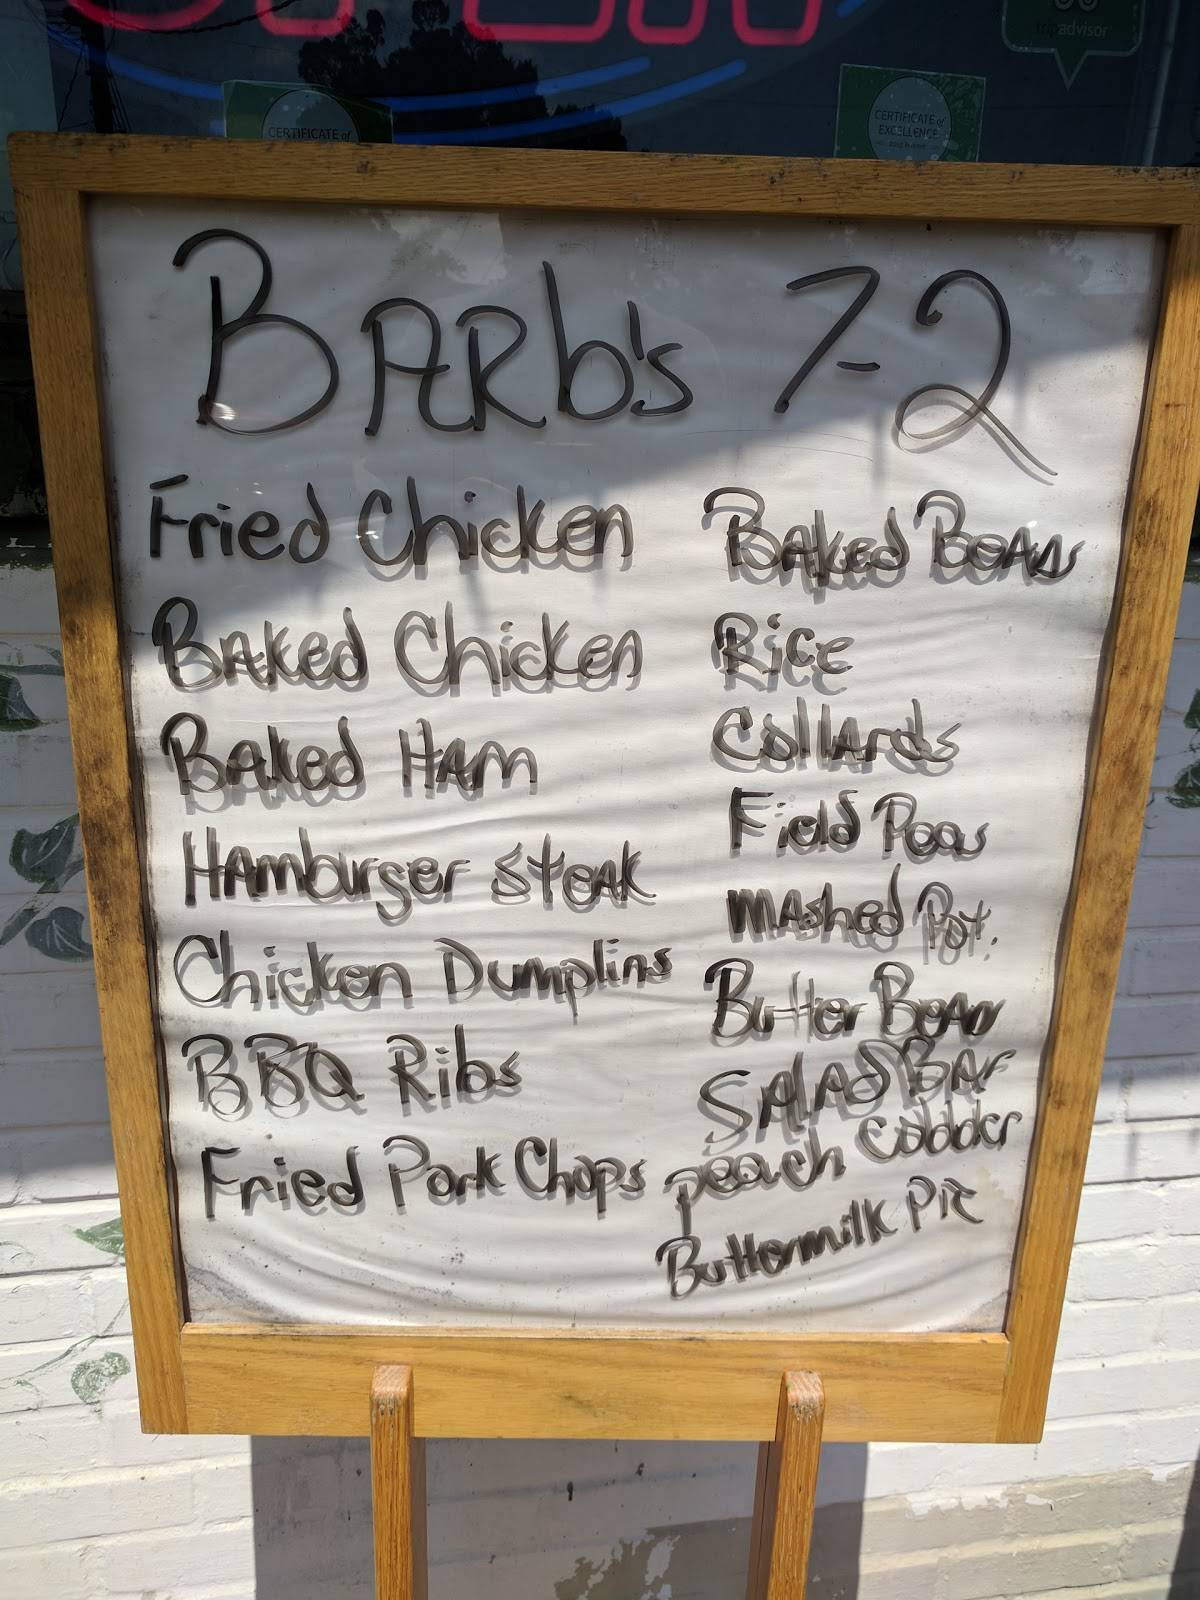 OPEN
tripadvisor
CERTIFICATE of
CERTIFICATE of
EXCELLENCE
BARb's 7-2
Fried Chicken
BAKed Chicken
BAKed HAM
HAmburger steAK
Chicken Dumplins
BBQ Ribs
Fried Pork Chops
BAKed BeANs
Rice
CollArds
Field Peas
mAshed Pot.
Butter BeAN
SAlAD BAr
peach Cobbler
Buttermilk Pie